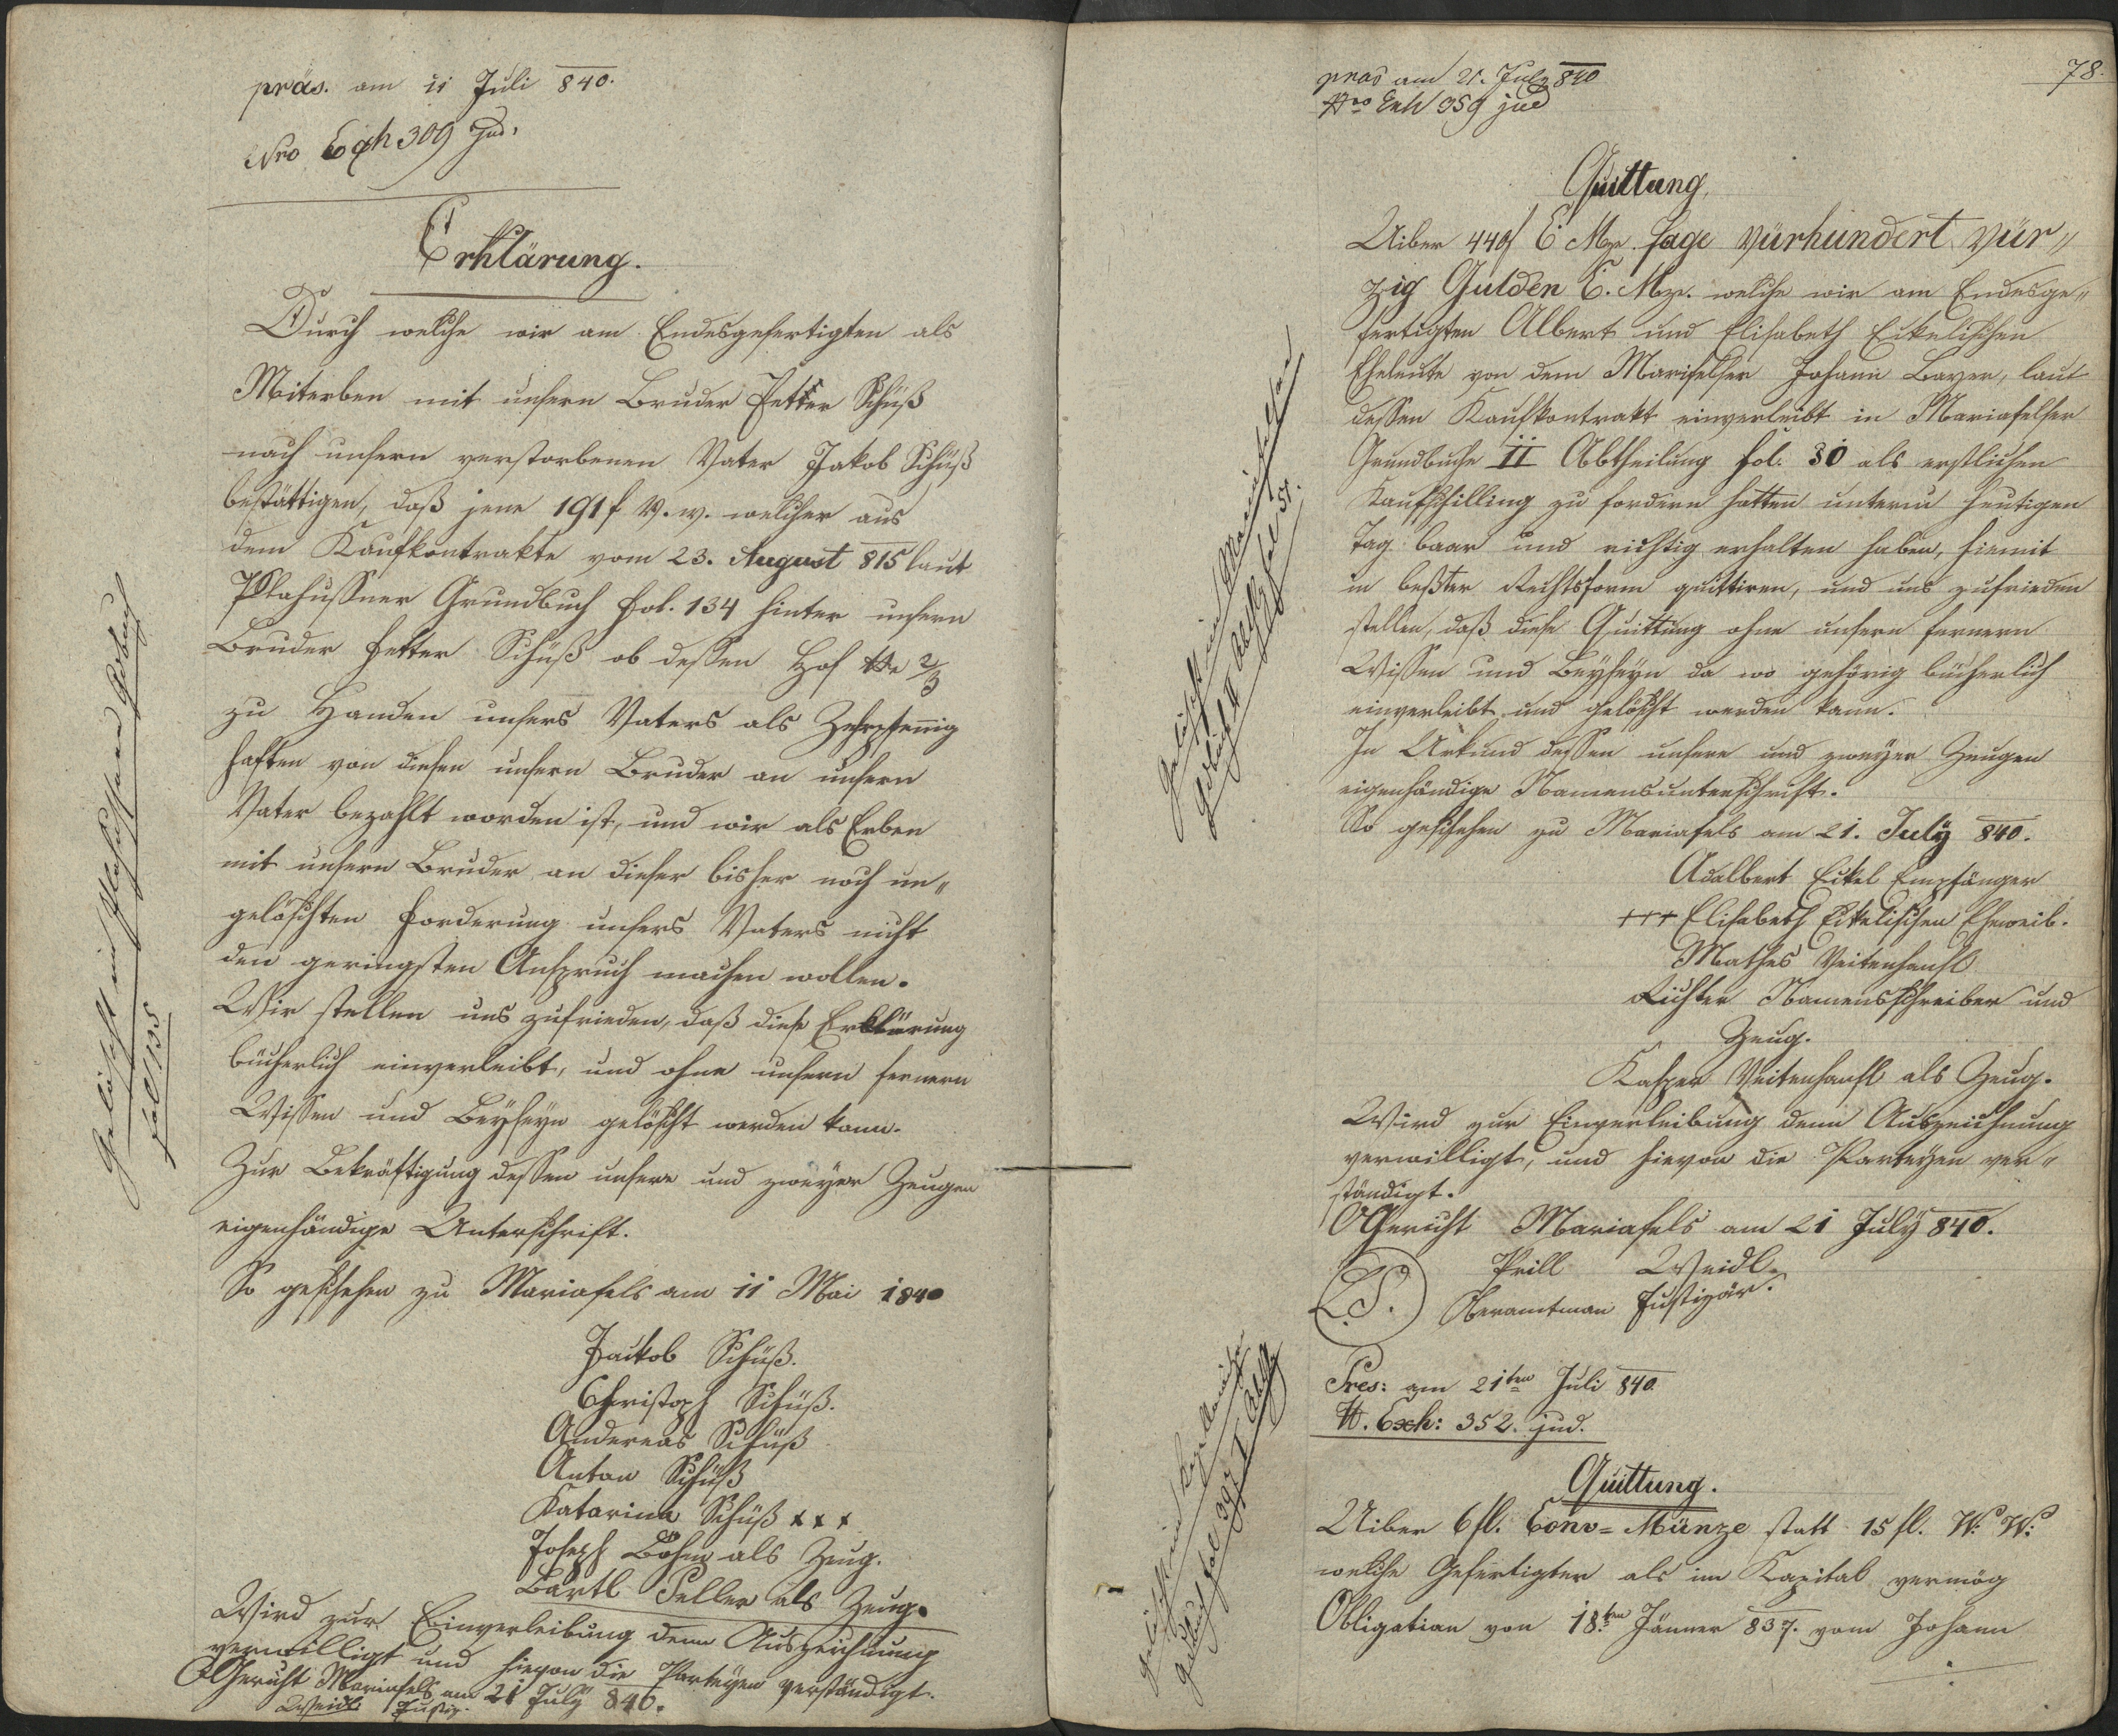 präs. am 11 Juli 840.
Nro Exh 309 Jud.
Erklärung.
Durch welche wir am Endesgefertigten als
Miterben mit unsern Bruder Petter Schüß
nach unsern verstorbenen Vater Jakob Schüß
bestättigen, daß jene 191 f W. W. welcher aus
dem Kaufkontrakte vom 23. August 815 laut
Plahußner Grundbuch fol. 134 hinter unsern
Bruder Petter Schüß ob dessen Hof Nr 2/3
zu Handen unsers Vaters als Zehrpfennig
haften von diesen unsern Bruder an unsern
Vater bezahlt worden ist, und wir als Erben
mit unsern Bruder an dieser bisher noch un„
gelöschten Forderung unsers Vaters nicht
den geringsten Anspruch machen wollen.
Wir stellen uns zufrieden, daß diese Erklärung
bücherlich einverleibt, und ohne unsern fernern
Wissen und Beyseyn gelöscht werden kann.
Zur Bekräftigung dessen unsere und zweyer Zeugen
eigenhändige Unterschrift.
So geschehen zu Mariafels am 11 Mai 1840
Jackob Schüß.
Christoph Schüß.
Andereas Schüß
Anton Schüß
Katarina Schüß x x x
Joseph Böhm als Zeug.
Bartl Peller als Zeug.
Wird zur Einverleibung denn Auszeichnung
verwilligt und hievon die Parteyen verständigt.
OGericht Mariafels am 21 July 840.
Weidl Justiz.
Gelöscht im Plahußner Grdbuch
fol 135
78.
präs am 21. July 840
Nro Exh 359 jud
Quittung
Uiber 440 f C Mze. sage Vürhundert Vür„
zig Gulden C. Mze. welche wir am Endesge„
fertigten Albert und Elisabeth Eikelischen
Eheleute von dem Marifelser Johann Bayer, laut
dessen Kaufkontrakt einverleibt in Mariafelser
Grundbuche II Abtheilung fol. 30 als erstlichen
Kaufschilling zu fordern hatten unterm heutigen
Tag baar und richtig erhalten haben, hiemit
in beßter Rechtsform quittiren, und uns zufrieden
stellen, daß diese Quittung ohne unsern fernern
Wissen und Beyseyn da wo gehörig bücherlich
einverleibt und gelöscht werden kann.
In Urkund dessen unsere und zweyer Zeugen
eigenhändige Namensunterschrift.
So geschehen zu Mariafels am 21. July 840.
Adalbert Eikel Empfänger
+++ Elisabeth Eikelischen Eheweib.
Mathes Veitenhansl
Richter Namensschreiber und
Zeug.
Kasper Veitenhansl als Zeug.
Wird zur Einverleibung denn Auszeichnung
verwilligt, und hievon die Parteyen ver„
ständigt.
OGericht Mariafels am 21 July 840.
Prill Weidl
L.S. Oberamtman Justizär.
Gelöscht im Mariafelser
Grdbuch II Abthlg fol 31.
Pres: am 21ten Juli 840
N. Exh: 352. jud.
Quittung.
Uiber 6 fl. Conv= Münze statt 15 fl. W: W:
welche Gefertigter als im Kapital vermög
Obligation von 18ten Jänner 837. vom Johann
Gelöscht im
Grdbuch fol 397 I Abthlg